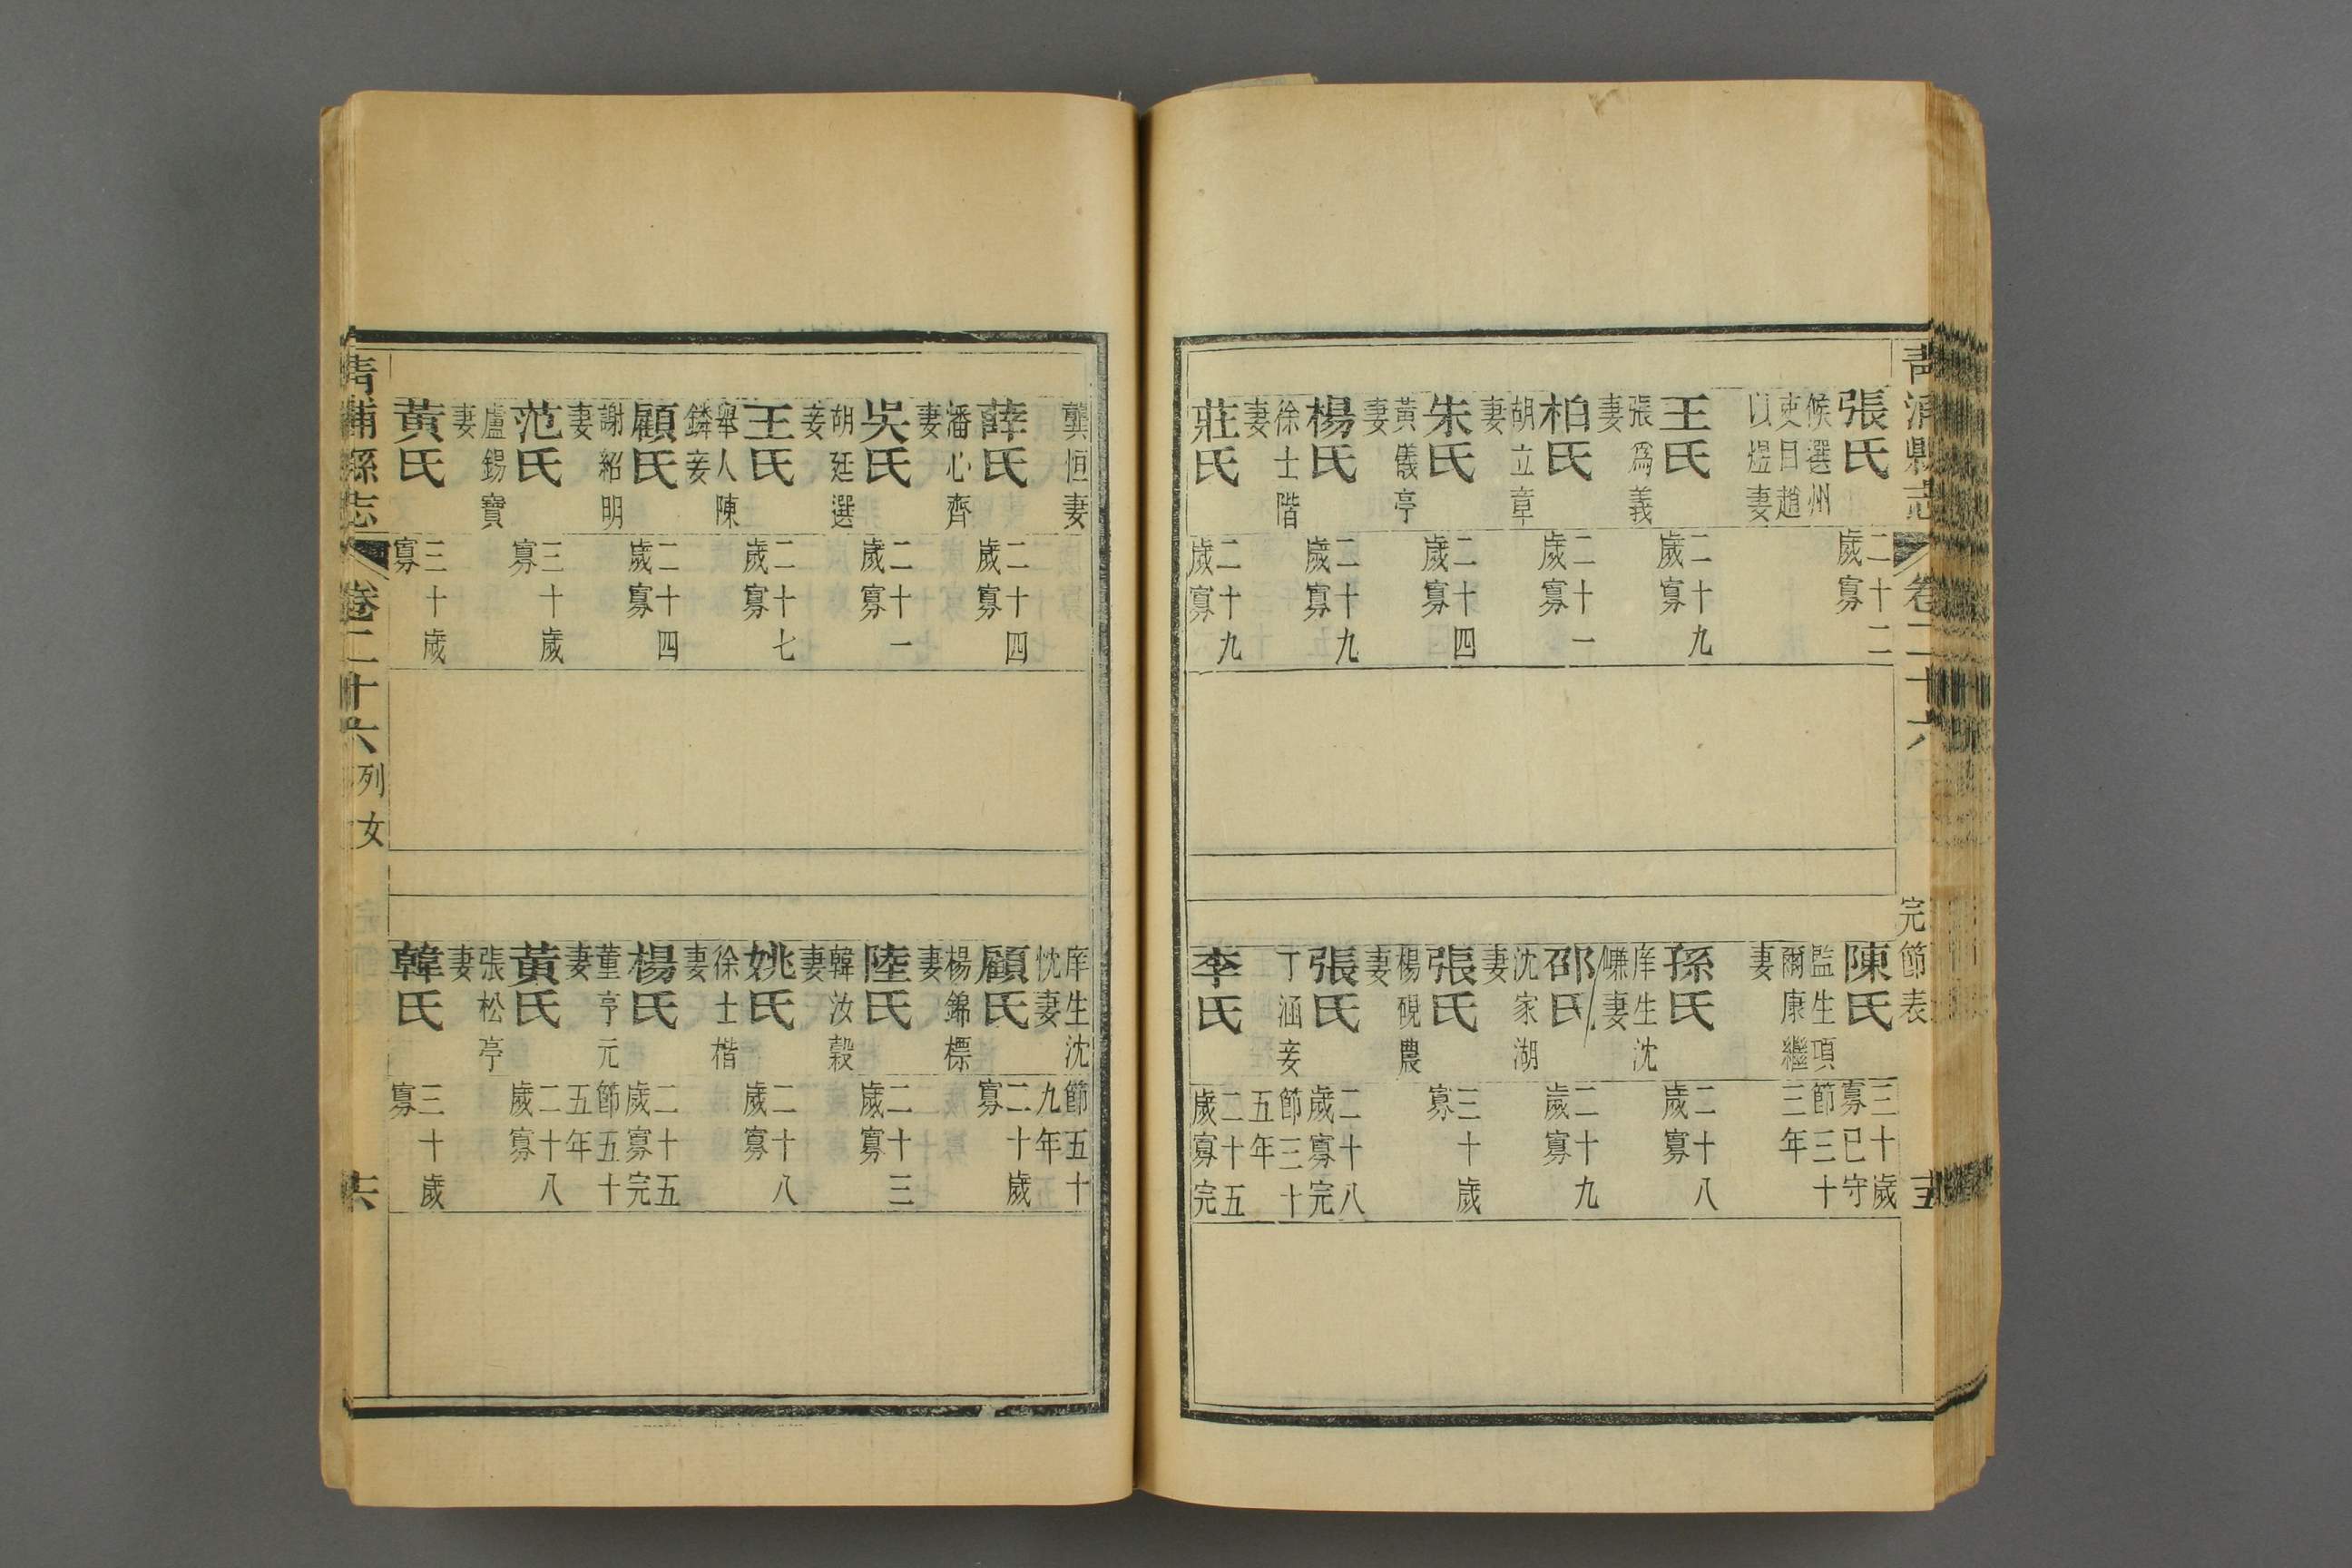 青浦縣志 卷二十六 完節表 十五
張氏
候選州
吏目趙
以煜妻
二十二
歲寡
王氏
張爲義
妻
二十九
歲寡
柏氏
胡立章
妻
二十一
歲寡
朱氏
黃儀亭
妻
二十四
歲寡
楊氏
徐士階
妻
二十九
歲寡
莊氏
二十九
歲寡
陳氏
監生項
爾康繼
妻
三十歲
寡已守
節三十
三年
孫氏
庠生沈
嗛妻
二十八
歲寡
邵氏
沈家湖
妻
二十九
歲寡
張氏
楊硯農
妻
三十歲
寡
張氏
丁涵妾
二十八
歲寡完
節三十
五年
李氏
二十五
歲寡完
龔恒妻
薛氏
潘心齊
妻
二十四
歲寡
吳氏
胡廷選
妾
二十一
歲寡
王氏
舉人陳
鏻妾
二十七
歲寡
顧氏
謝紹明
妻
二十四
歲寡
范氏
盧錫寶
妻
三十歲
寡
黃氏
三十歲
寡
庠生沈
忱妻
節五十
九年
顧氏
楊錦標
妻
二十歲
寡
陸氏
韓汝穀
妻
二十三
歲寡
姚氏
徐士楷
妻
二十八
歲寡
楊氏
董亨元
妻
二十五
歲寡完
節五十
五年
黃氏
張松亭
妻
二十八
歲寡
韓氏
三十歲
寡
青浦縣志 卷二十六 列女 十六